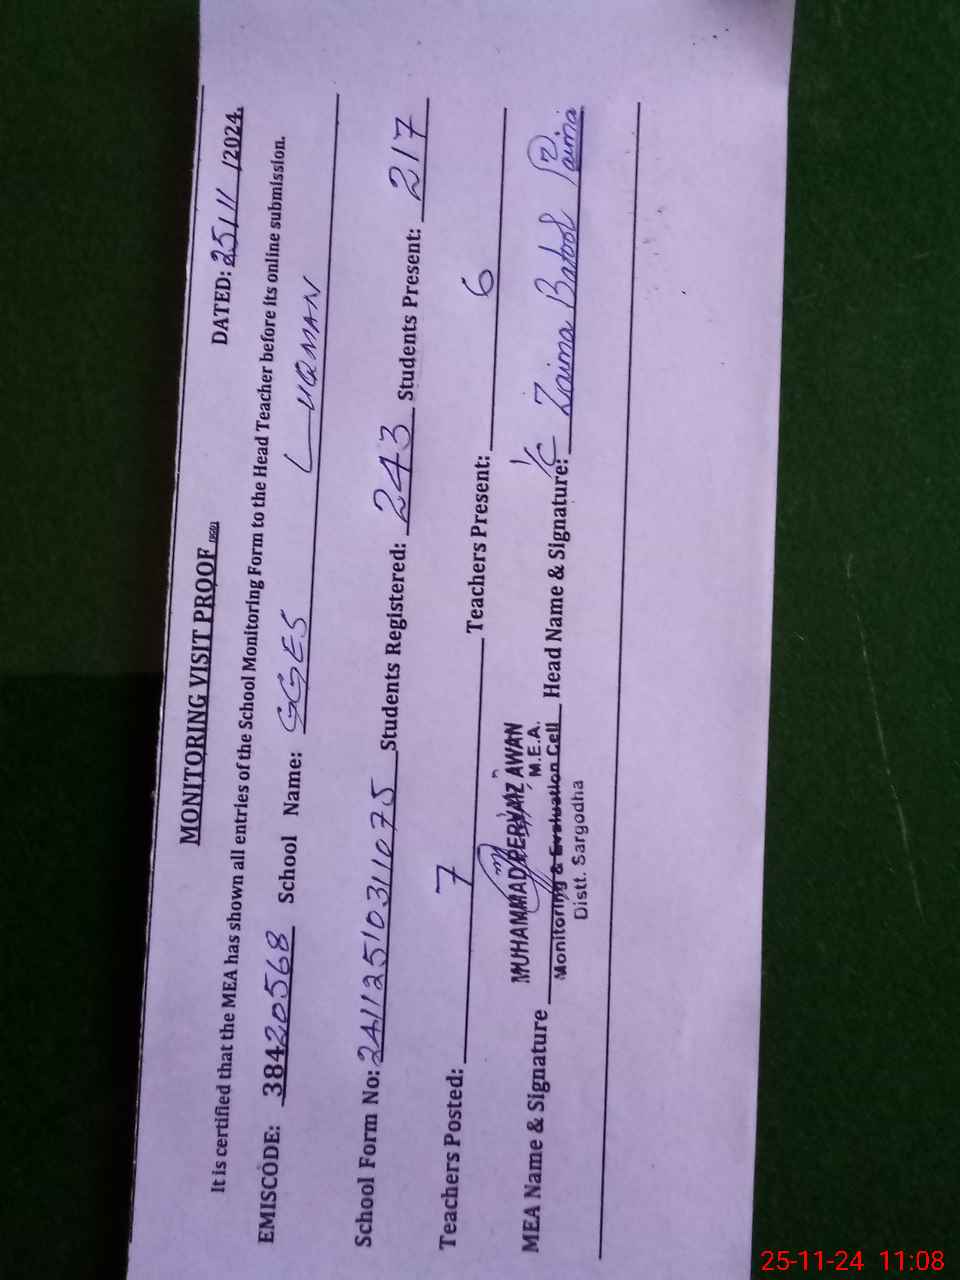 MONITORING VISIT PROOF
DATED: 25/11/2024.
It is certified that the MEA has shown all entries of the School Monitoring Form to the Head Teacher before its online submission.
EMISCODE: 38420568 School Name: GGES LUQMAN
School Form No: 24112510311075 Students Registered: 243 Students Present: 217
Teachers Posted: 7 Teachers Present: 6
MUHAMMAD PERVAIZ AWAN
M.E.A.
MEA Name & Signature Monitoring & Evaluation Cell Head Name & Signature: I/C Zaima Batool Zaima
Distt. Sargodha
25-11-24 11:08